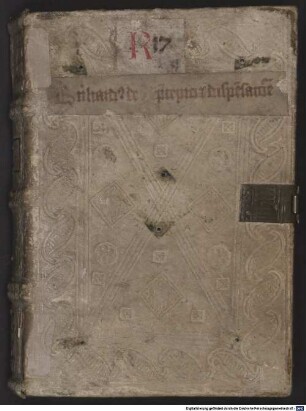 R 17
B̄nhardꝰ de p̄cepto ⁊ dispēsacōe
Digitalisierung gefördert durch die Deutsche Forschungsgemeinschaft